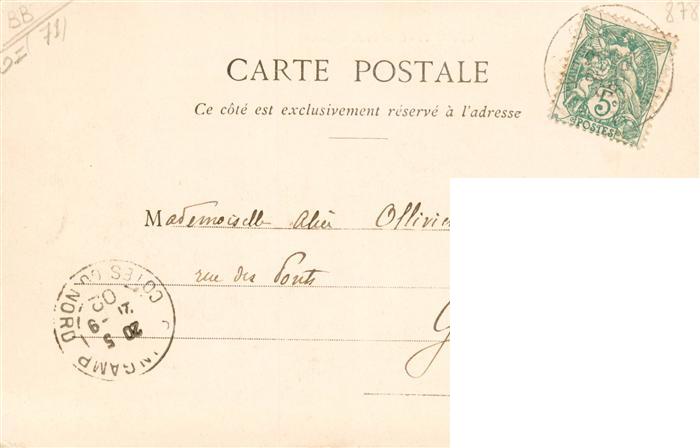 BB
71)
878
CARTE POSTALE
Ce côté est exclusivement réservé à l'adresse
5c
POSTES
Mademoiselle Alice Ollivie
rue des Ponts
G
INGAMP
COTES DU NORD
20
5 -9
02